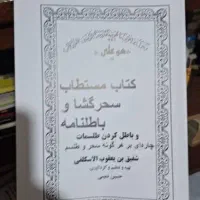 هوالعلی
کتاب مستطاب
سحر گشا و
باطلنامه
و باطل کردن طلسمات
چاره‌ای بر هر گونه سحر و طلسم
شفیق بن یعقوب الاسکافی
تهیه و تنظیم و گردآوری
حسین نجمی